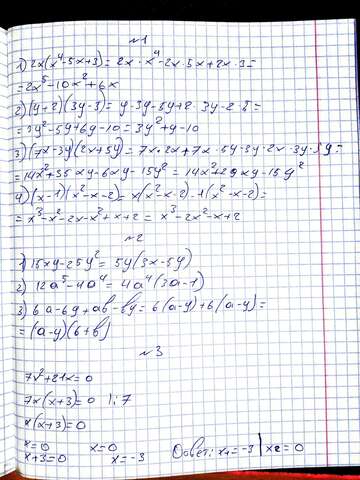 №1
1) 2x(x⁴-5x+3)= 2x·x⁴-2x·5x+2x·3=
=2x⁵-10x²+6x
2)(y+2)(3y-5)= y·3y-5y+2·3y-2·5=
=3y²-5y+6y-10=3y²+y-10
3)(7x-3y)(2x+5y)=7x·2x+7x·5y-3y·2x-3y·5y=
=14x²+35xy-6xy-15y²=14x²+29xy-15y²
4)(x-1)(x²-x-2)=x(x²-x-2)-1(x²-x-2)=
=x³-x²-2x-x²+x+2= x³-2x²-x+2
№2
1) 15xy-25y²= 5y(3x-5y)
2) 12a⁵-4a⁴=4a⁴(3a-1)
3) 6a-6y+ab-by=6(a-y)+b(a-y)=
=(a-y)(6+b)
№3
7x²+21x=0
7x(x+3)=0 |:7
x(x+3)=0
x=0 x=0 Ответ: x₁=-3 | x₂=0
x+3=0 x=-3